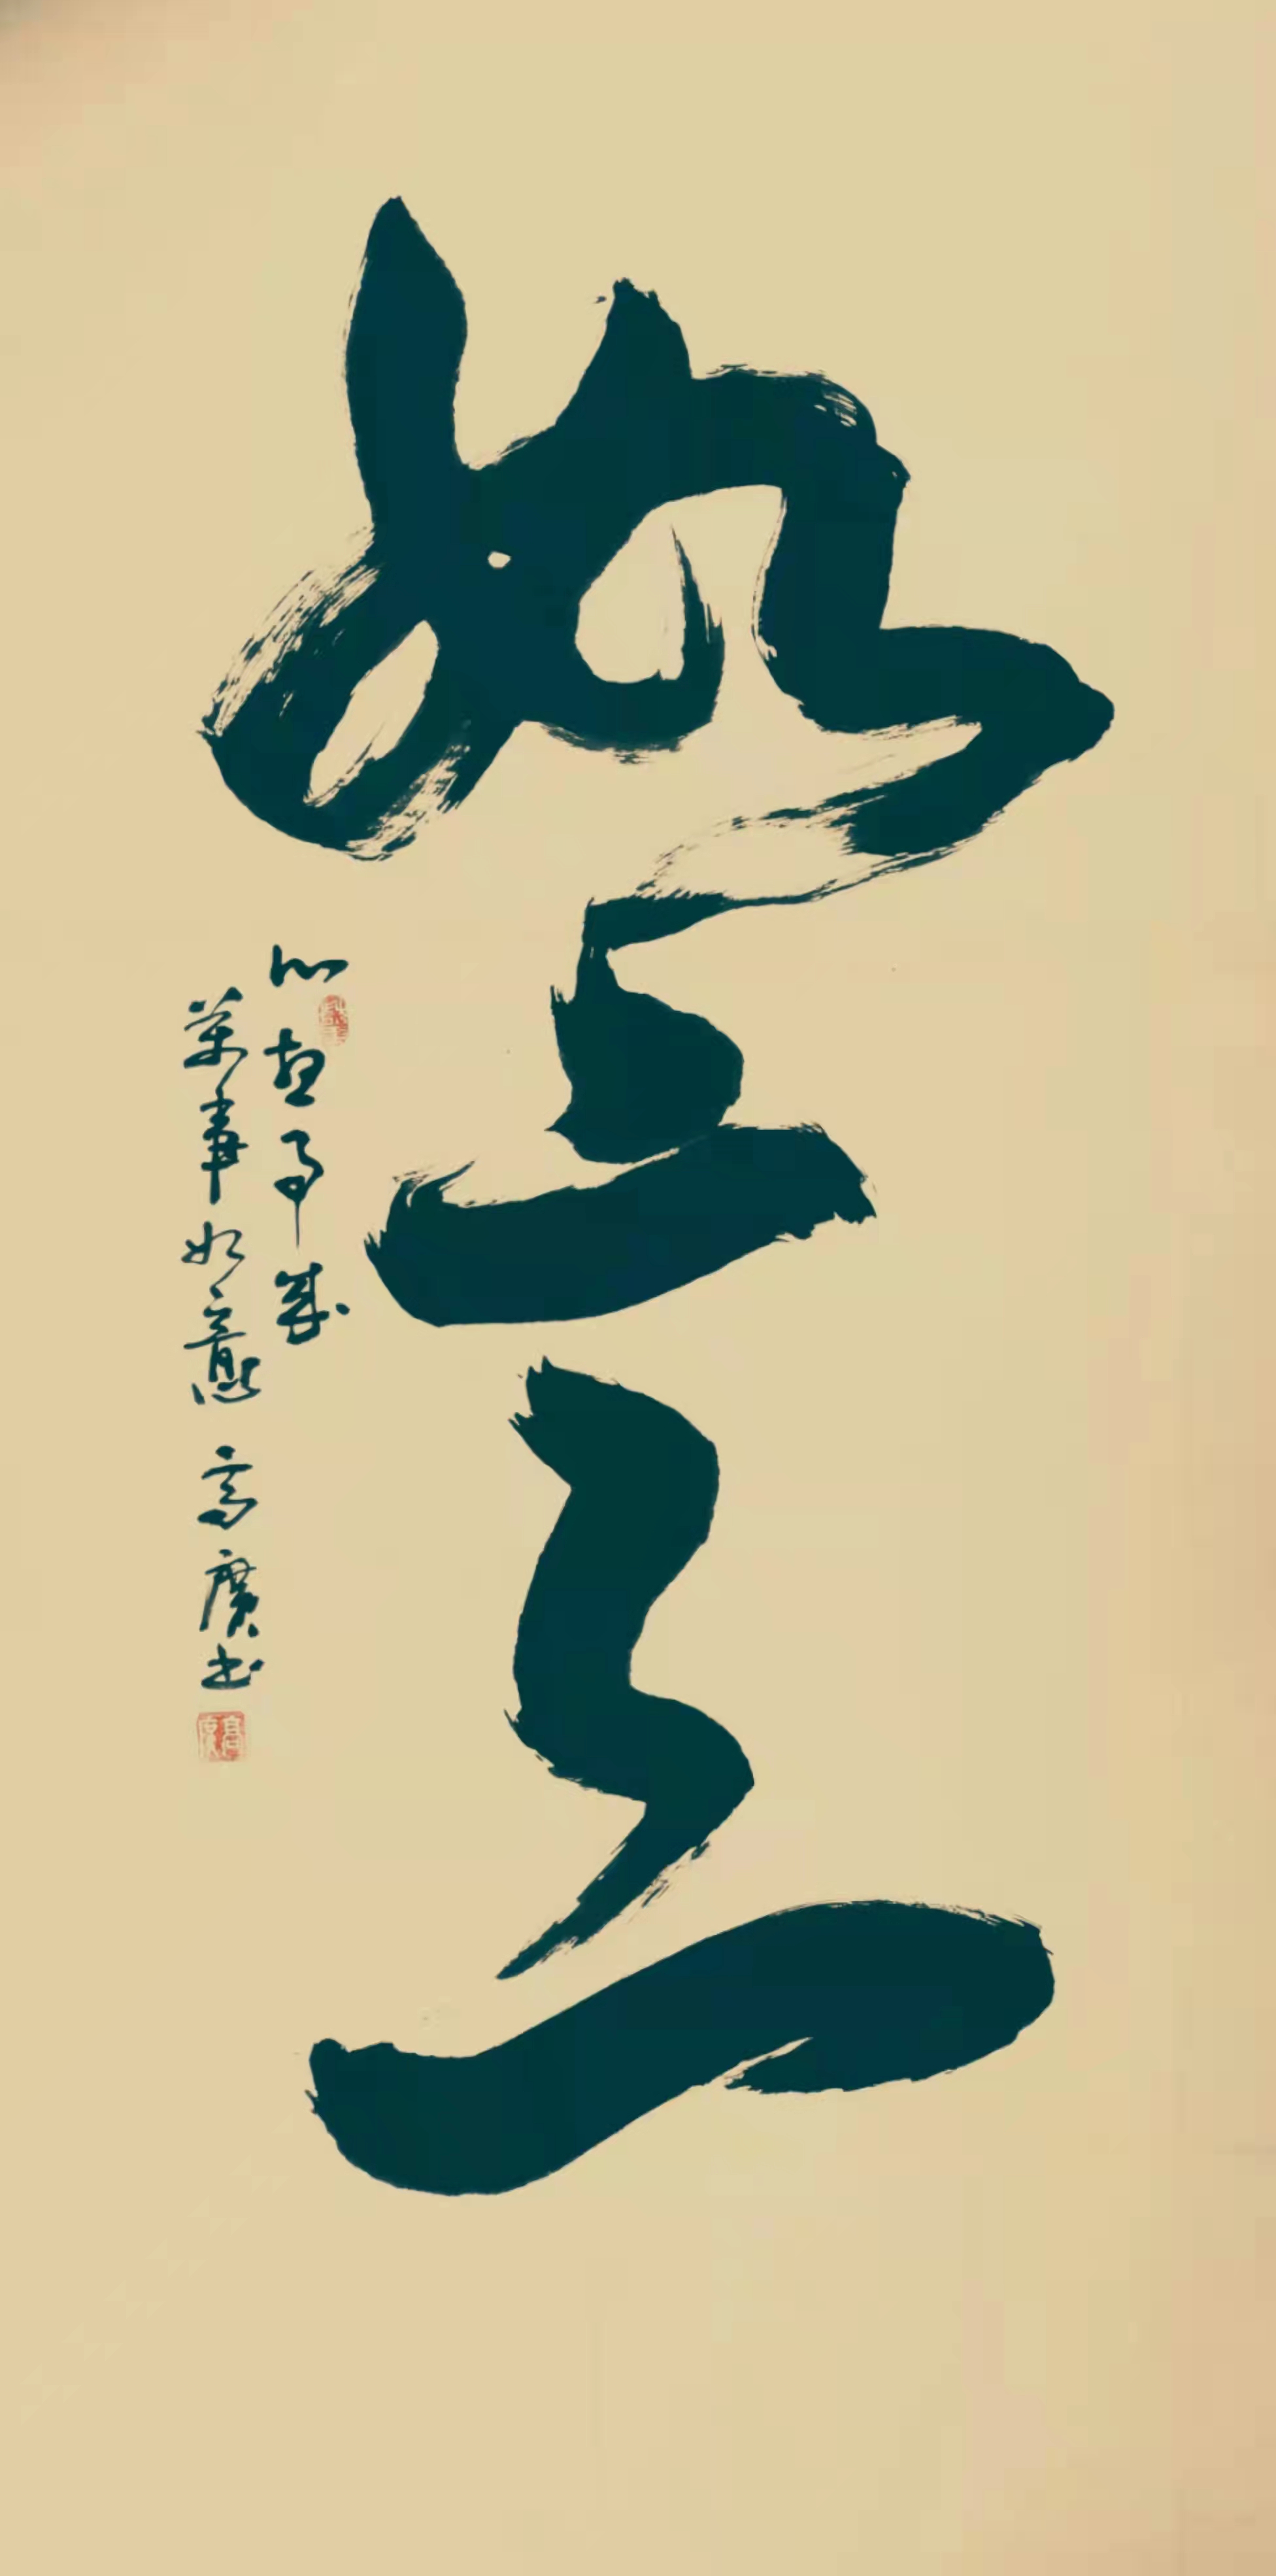 如意
心想事成
萬事如意 高廣书